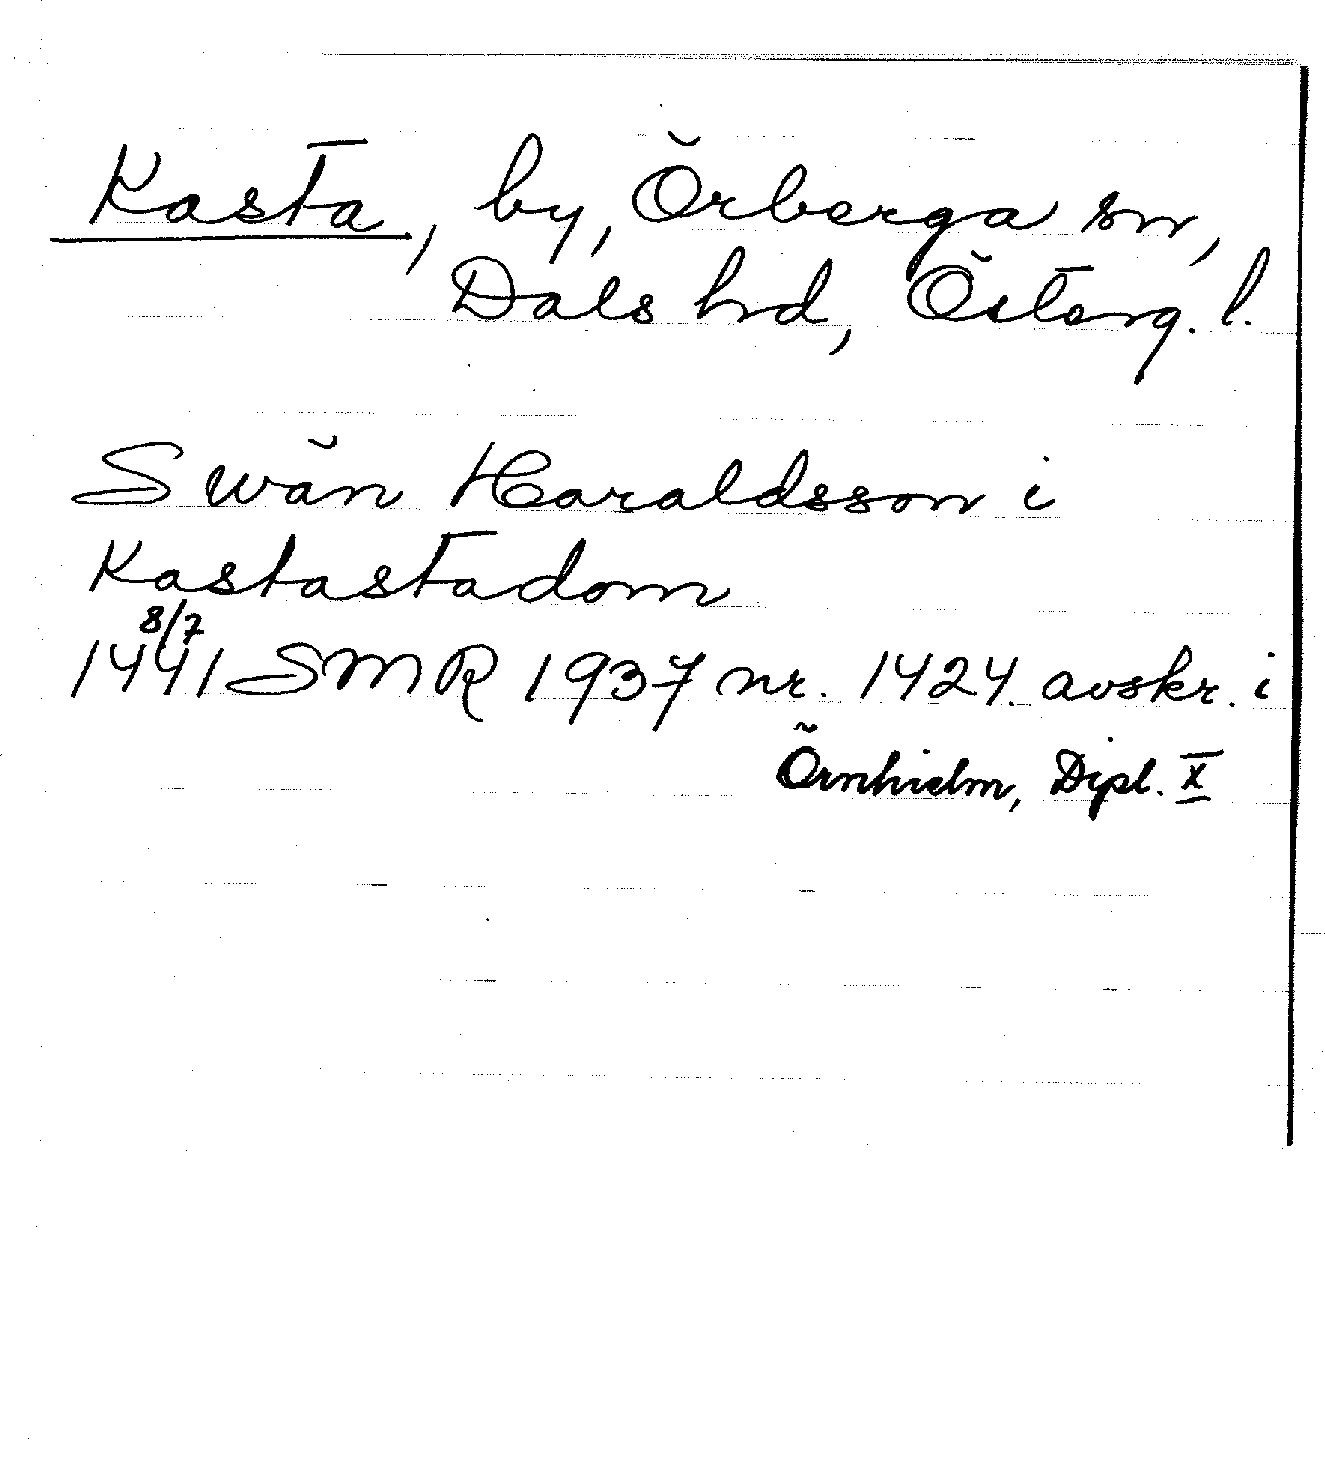 Kasta, by, Örberga sn,
Dals hd, Österg. l.
Swän Haraldsson i
Kastastadom
8/7
1441 SMR 1937 nr. 1424. avskr. i
Örnhielm, Dipl. X